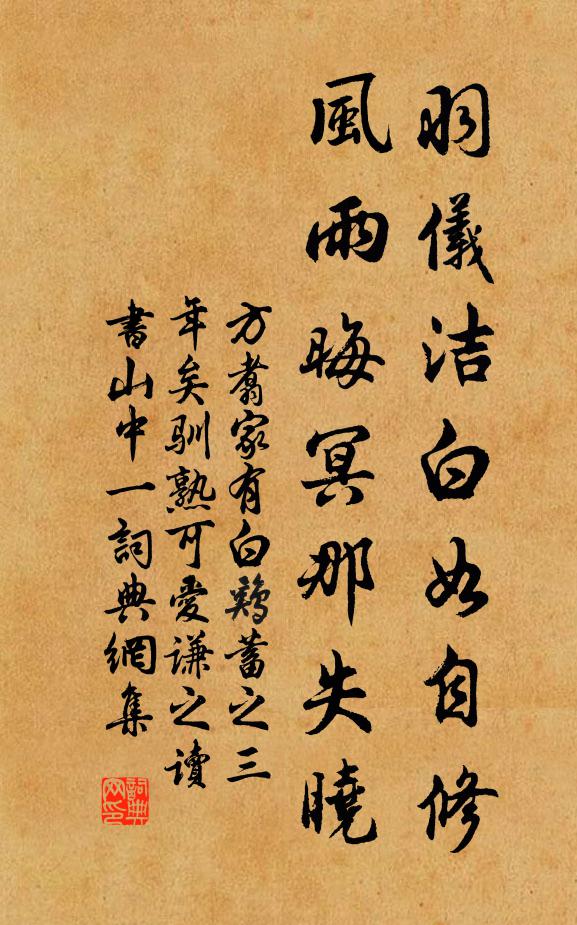 羽儀洁白如自修
風雨晦冥那失曉
方翥家有白鶏蓄之三
年矣馴熟可愛謙之讀
書山中一詞典網集
詞典网印